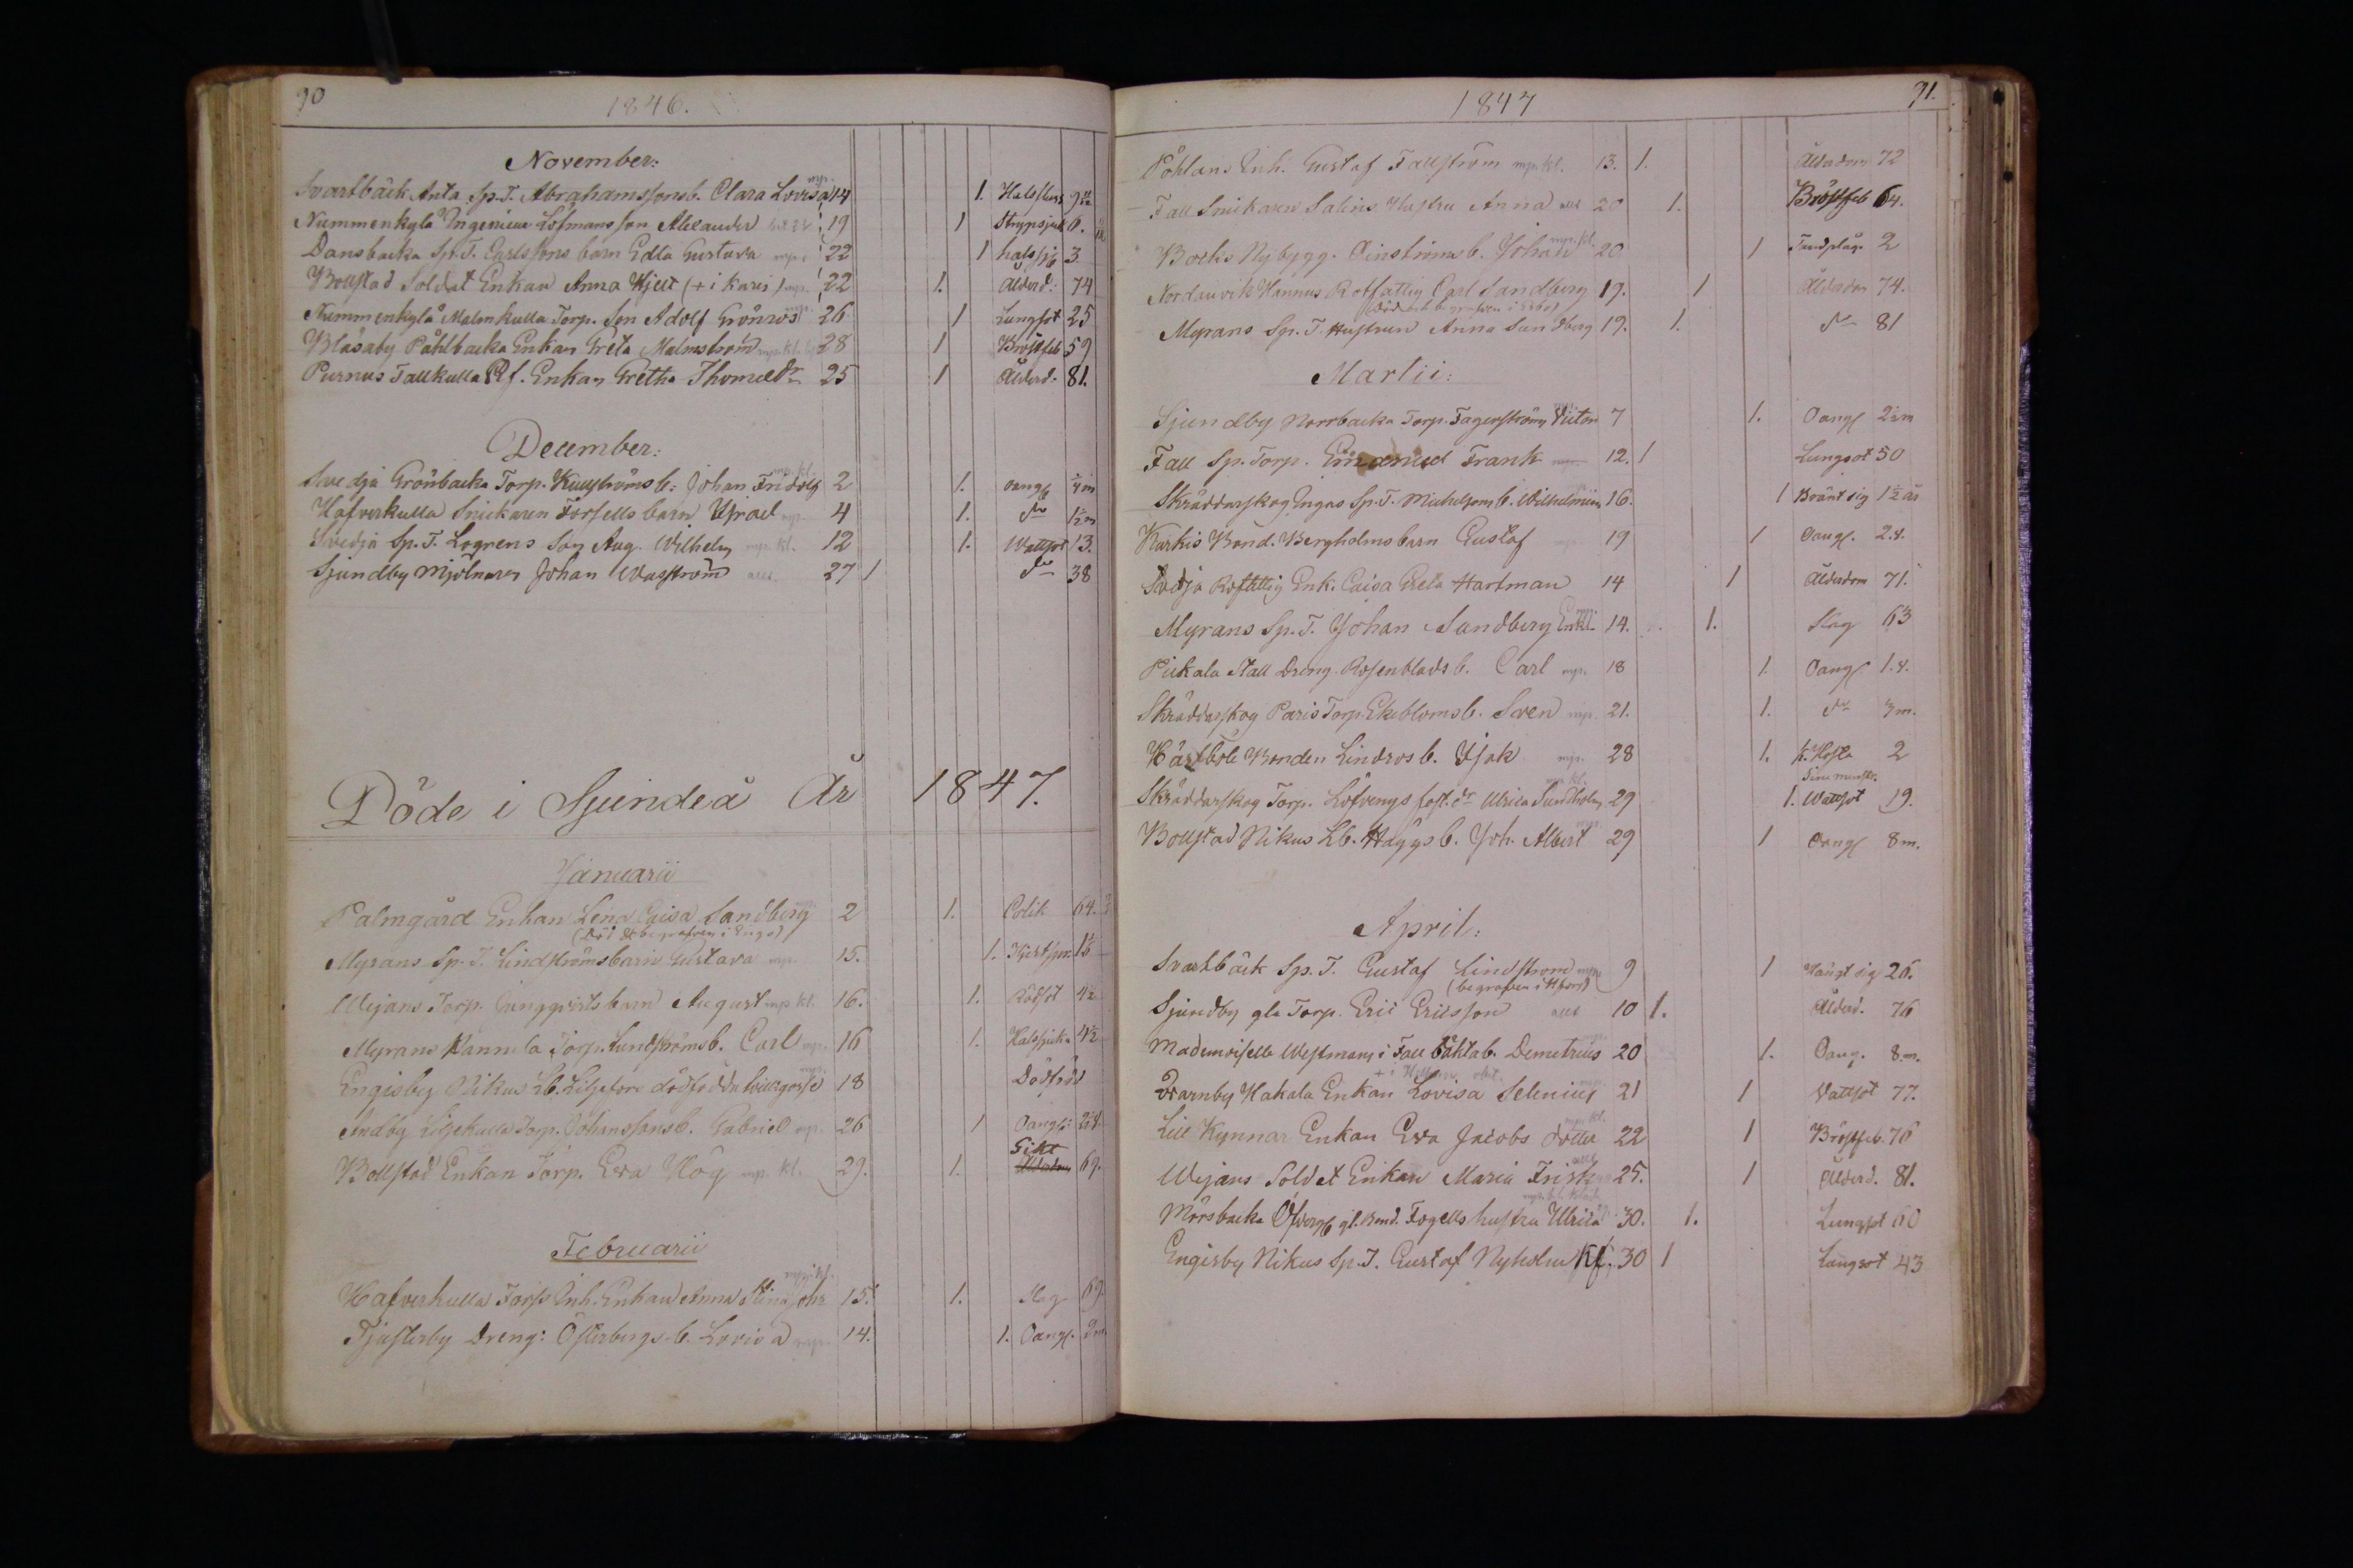 90
1846.
November:
Svartbäck Anta Sp. T. Abrahamssons b. Clara Lovisa 14 1. Halsfluss
Nummenkylä Ingenieur Löfmans son Alexander 19 1 Strypsjuk 6.
Dansbacka Sp. T. Carlssons barn Edla Gustava 22 1 halssj 3
Bollstad Soldat Enkan Anna Hjelt (+ i Karis) 22 1. Ålderd: 74
Nummenkylä Malmkulla Torp. Son Adolf Grönros 26 1 Lungsot 25
Blåsaby Påhlbacka Enkan Greta Malmström 28 1 Bröstfeb 59
Purnus Tallkulla Enkan Gretha Thomedr 25 1 Ålderd. 81.
December:
Svedja Grönbacka Torp. b: Johan Fridolf 2 1. oangf
Hafverkulla Snickaren Forsells barn Israel 4 1. do
Svedja Sp. T. Logrens Son Aug. Wilhelm 12 1. Wattsot 13.
Sjundby Mjölnaren Johan Wasström 27 1 do 38
Döde i Sjundeå År 1847.
Januarii
Palmgård Enkan Lena Caisa Sandberg 2 1. Colik 64.
(Död & begrafven i Ingo)
Myrans Sp. T. Lindströms barn Gustava 15. 1.
Wejans Torp. Ljungqvists barn August 16. 1. Rödsot 4½
Myrans Kannila Torp. Lundströms b. Carl 16 1. Halssjuka 4½
Engisby Nikus Lb. Liljefors dödfödda gosse 18 Dödföd
Andby Liljekulla Torp. Johanssons b. Gabriel 26 1 Oangf:
Gikt
Bollstad Enkan Torp. Eva Hög 29. 1. Ålderdom 69.
Februarii
Hafverkulla Torp Inh. Enkan Anna Stina 15. 1. Slag 69.
Tjusterby Dreng: Österbergs b. Lovisa 14. 1. Oangf.
1847
91.
Påhlans Inh. Gustaf Fallström 13. 1. Ålderdom 72
Fall Snickaren Salins Hustru Anna 20 1. Bröstfeb 64.
Backs Nybygg. b. Johan 20 1 Tandplåga 2
Nordanvik Hannus Rotfattig Carl Sandberg 19. 1 Ålderdom 74.
(död och begrafven i Esbo)
Myrans Sp. T. Hustrun Anna Sundberg 19. 1. do 81
Martii:
Sjundby Norrbacka Torp. Fagerströms Victor 7 1. Oangf 2½m
Fall Sp. Torp. Emanuel Frank 12. 1 Lungsot 50
Skräddarskog Ingas Sp. T. Michelsons b. Wilhelmina 16. 1 Bränt sig 1½ år
Karkis Bond. Bergholms barn Gustaf 19 1 Oangf. 2.
Svedja Rotfattig Enk. Caisa Greta Hartman 14 1 Ålderdom 71.
Myrans Sp. T. Johan Sandberg Enkl. 14. 1. Slag 63
Pickala Stall Dreng. Rosenblads b. Carl 18 1. Oangf 1.
Skräddarskog Paris Torp. Ekebloms b. Sven 21. 1. do 3m.
Härtböle Bonden Lindros b. Isak 28 1. k. Hosta 2
Skräddarskog Torp. Löfvengs fost. dr Ulrica Sundholm 29 1. Wattsot 19.
Bollstad Nikus Lb. Häggs b. Joh. Albert 29 1 Oangf 8m.
April:
Svartbäck Sp. T. Gustaf Lindström 9 1 Hängt sig 26.
(begrafven i Hfors)
Sjundby gla Torp. Eric Ericsson 10 1. Ålderd. 76
Mademoiselle Westmans i Fall oäkta b. Demetrius 20 1. Oang. 8.m.
Qvarnby Hakala Enkan Lovisa Selenius 21 1 Vattsot 77.
Lill Kynnar Enkan Eva Jacobs dotter 22 1 Bröstfeb. 76
Wejans Soldat Enkan Maria Frisk 25. 1 Ålderd. 81.
Mörsbacka Öfverg gl. Bond. Fogells hustru Ulrica 30. 1. Lungsot 60
Engisby Nikus Sp. T. Gustaf Nyholm 30 1 Lungsot 43